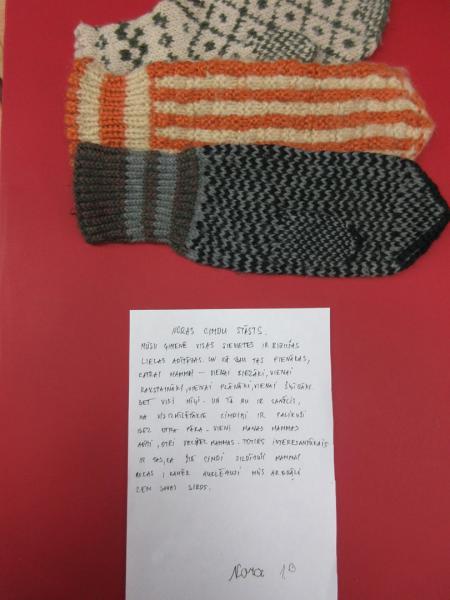 NORAS CIMDU STĀSTS.
MŪSU ĢIMENĒ VISAS SIEVIETES IR BIJUŠAS
LIELAS ADĪTĀJAS. UN KĀ JAU TAS PIENĀKAS,
KATRAI MAMMAI – VIENAI BIEZĀKI, VIENAI
RAKSTAINĀKI, VIENAI PLĀNĀKI, VIENAI
BET VISI MĪĻI. UN TĀ NU IR SANĀCIS,
KA VISIZMĪLĒTĀKIE CIMDIŅI IR PALIKUŠI
BEZ OTRA PĀRA. VIENI MANAS MAMMAS
ADĪTI, OTRI VECĀS MAMMAS. TOMĒR INTERESANTĀKAIS
IR TAS, KA ŠIE CIMDI SILDĪJUŠI MAMMAI
ROKAS, KAMĒR AUKLĒJUŠI MŪS AR BRĀLI
ZEM SAVAS SIRDS.
Nora 1.B